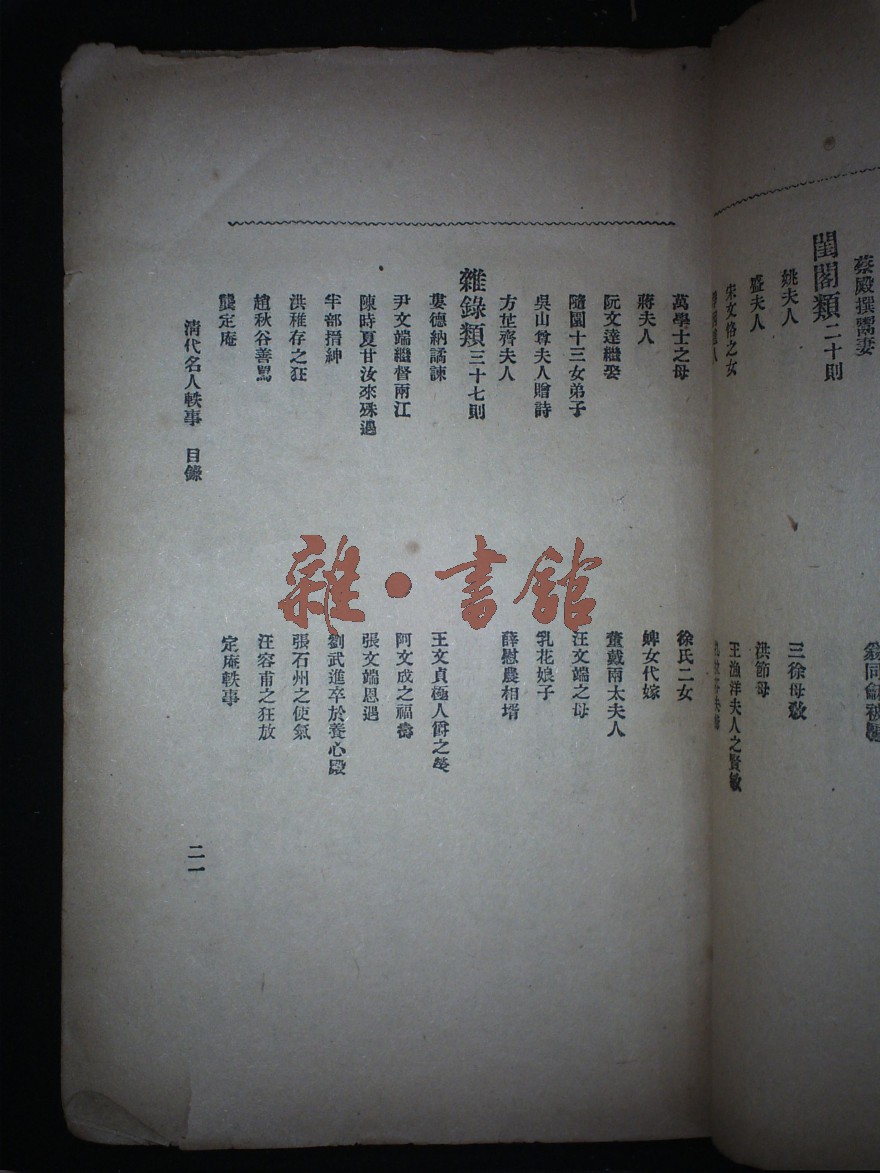 蔡殿撰鬻妻
閨閣類 二十則
姚夫人
三徐母教
盛夫人
洪節母
宋文恪之女
王漁洋夫人之賢敏
萬學士之母
徐氏二女
蔣夫人
婢女代嫁
阮文達繼娶
董戴兩太夫人
隨園十三女弟子
汪文端之母
吳山尊夫人贈詩
乳花娘子
方芷齋夫人
薛慰農相壻
雜錄類 三十七則
婁德納譎諫
王文貞極人爵之榮
尹文端繼督兩江
阿文成之福壽
陳時夏甘汝來殊遇
張文端恩遇
半部搢紳
劉武進卒於養心殿
洪稚存之狂
張石州之使氣
趙秋谷善罵
汪容甫之狂放
龔定庵
定庵軼事
清代名人軼事 目錄
二一
雜·書館